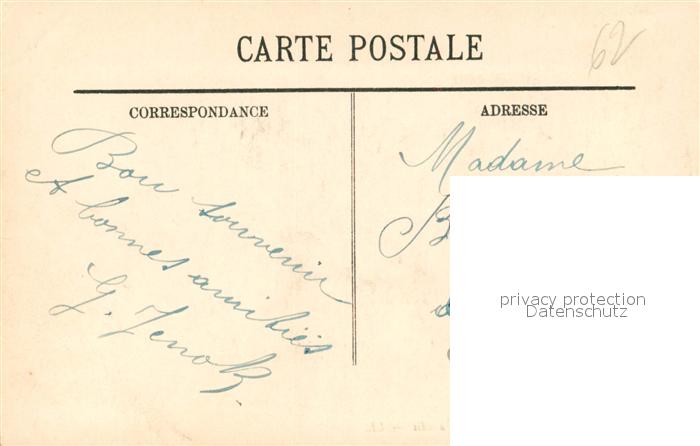 CARTE POSTALE
62
CORRESPONDANCE
ADRESSE
Bon souvenir
et bonnes amitiés
G.
Madame
privacy protection
Datenschutz